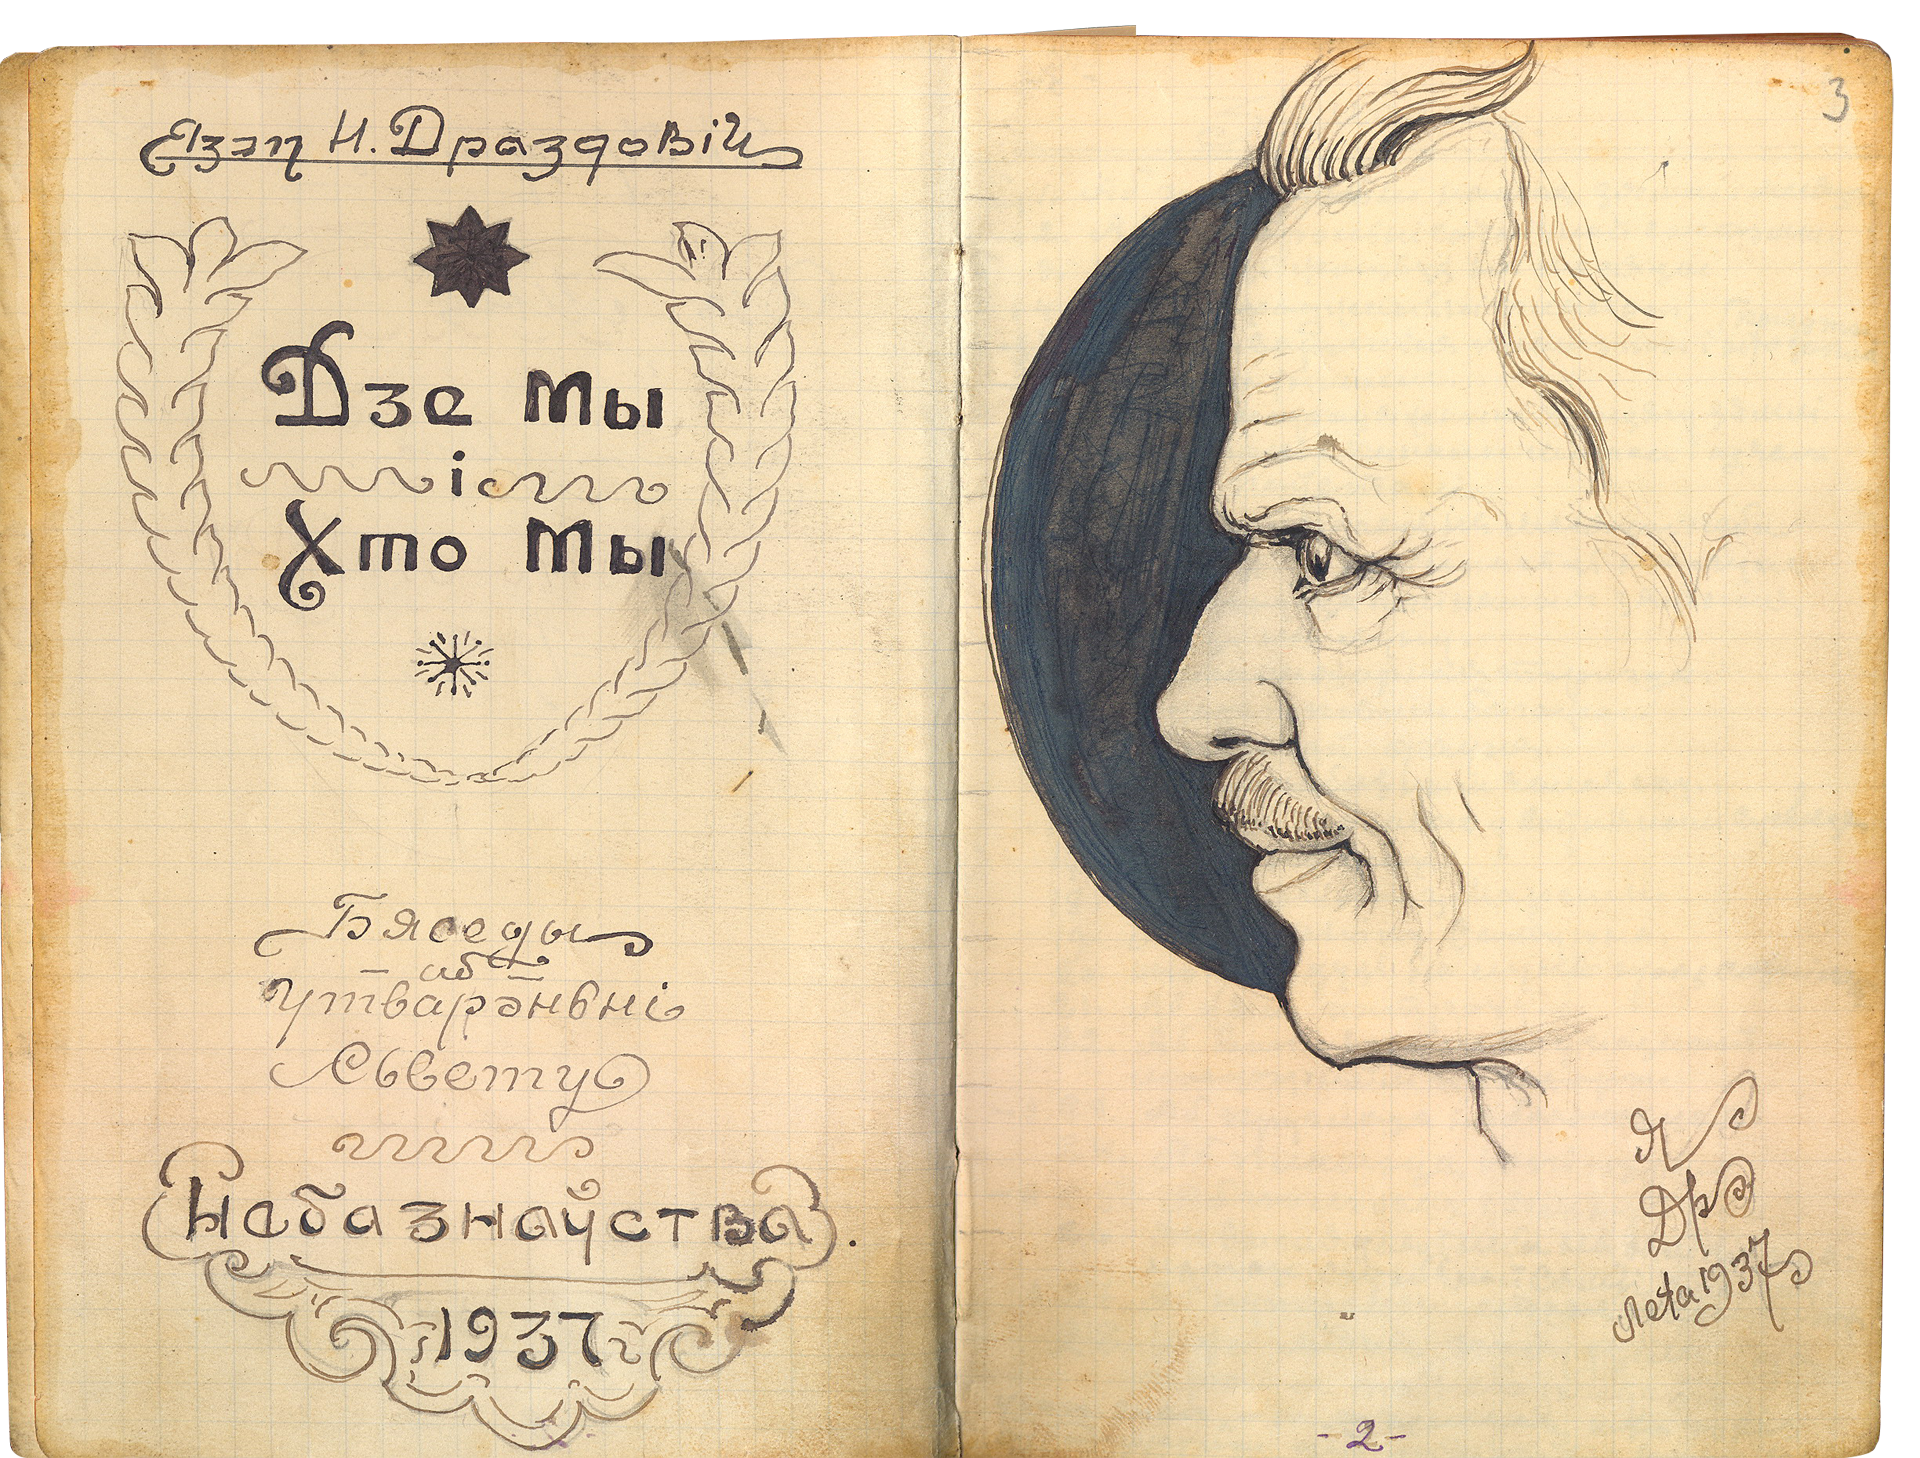 Язэп Н. Драздовіч
Дзе мы
і
Хто мы
Бяседы
аб
утварэньні
Сьвету
Небазнаўства.
1937 г.
3
Я
Др
Лета 1937
- 2 -